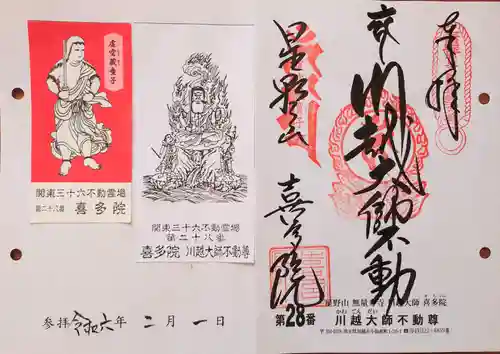 虚空蔵童子
関東三十六不動霊場
第二十八番 喜多院
関東三十六不動霊場
第二十八番
喜多院 川越大師不動尊
参拝 令和六年 二月 一日
奉拝
川越大師不動
星野山
喜多院
星野山 無量寿寺 川越大師 喜多院
第28番 川越大師不動尊